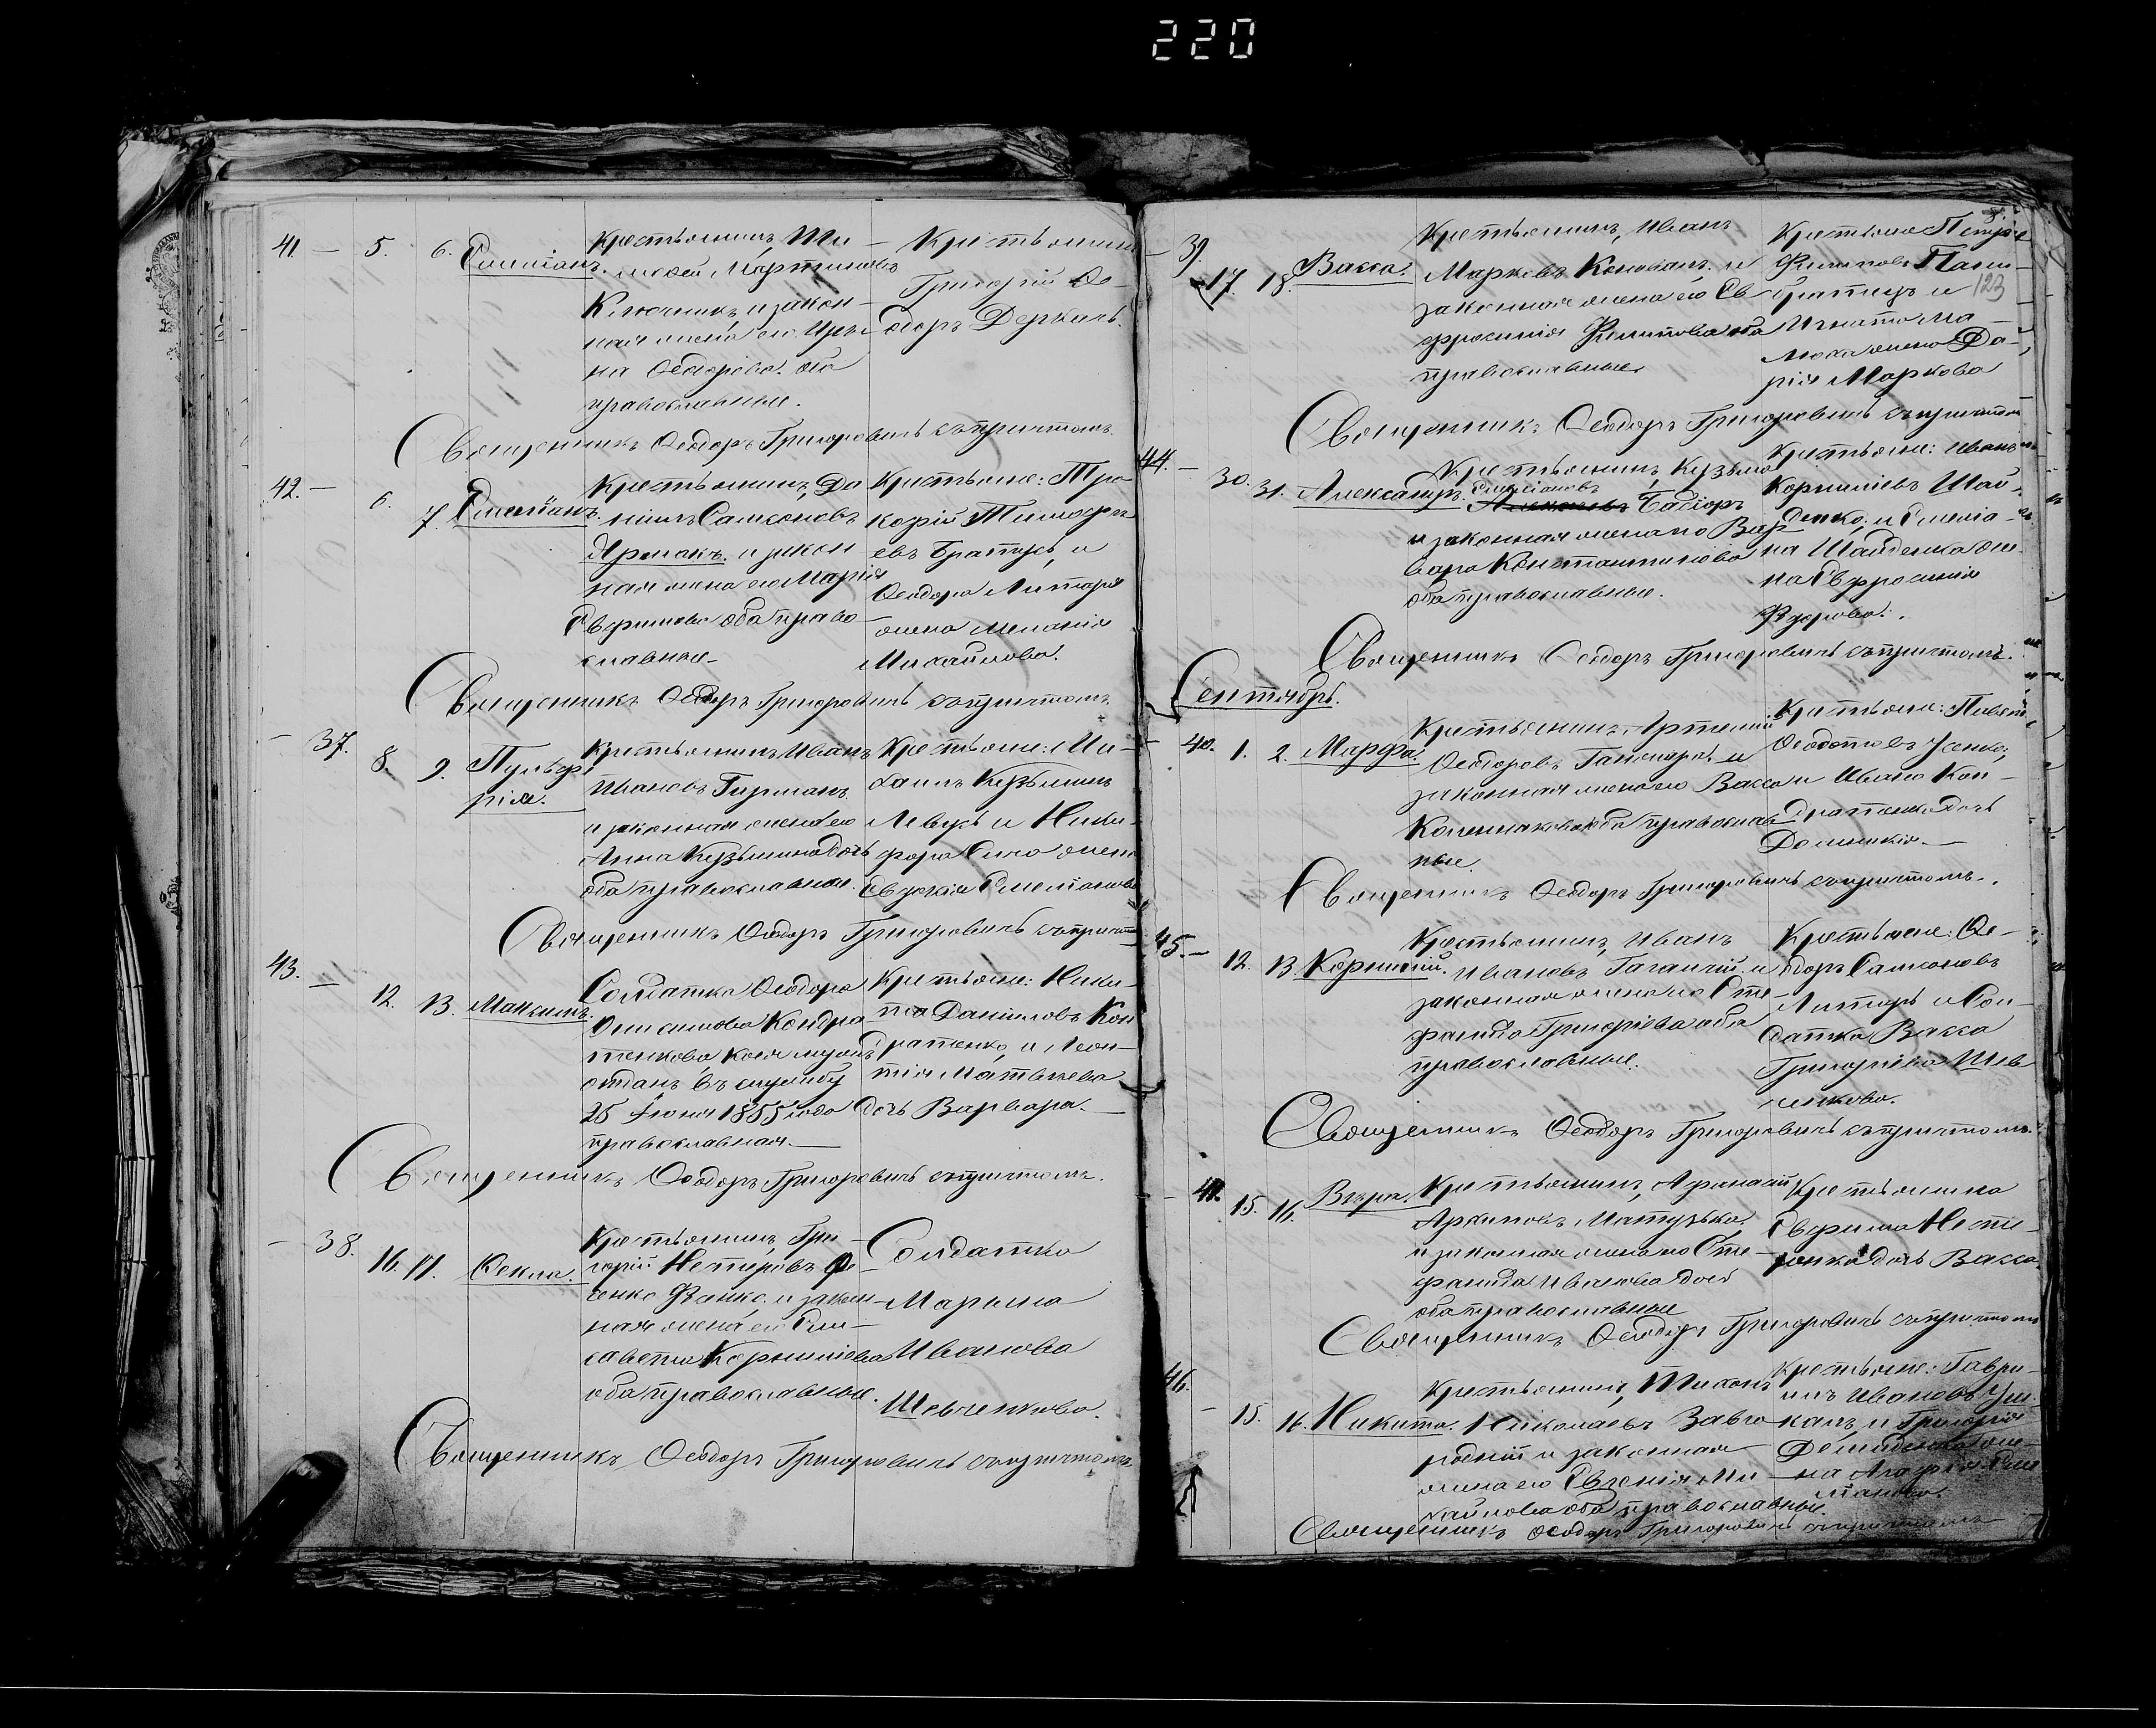 220
41. — 5. 6. Емеліанъ.
Крестьянинъ Ми-
Мартиновъ
Ключникъ, и закон-
ная жена его Ири-
на Ѳеодорова. оба
православные.
Крестьянинъ
Григорій Ѳе-
одоръ Деркачь.
Священникъ Ѳеодоръ Григоровичь съ причтомъ.
42. — 6. 7. Емеліанъ.
Крестьянинъ Да-
ніилъ Самсоновъ
Ярмакъ. и закон
ная жена его Марія
оба право-
славные.
Крестьяне:
Братусь, и
Ѳеодора Литаря
жена Меланія
Михайлова.
Священникъ Ѳеодоръ Григоровичь съ причтомъ.
— 37. 8. 9. Пульхе-
рія.
Крестьянинъ Иванъ
Ивановъ
и законная жена его
Анна Кузьмина дочь
оба православные.
Крестьяне: Ми-
хаилъ Кузьминъ
и Ники-
фора жена
Евдокія Емеліанова
Священникъ Ѳеодоръ Григоровичь съ причто
43. — 12. 13. Максимъ.
Солдатка Ѳеодора
Онисимова Кондра
тенкова, коея мужъ
отданъ въ службу
25 Іюня 1855 года
православная.
Крестьяне: Ники-
та Даниловъ Кон
дратенко, и Леон-
тія Матвѣева
дочь Варвара.
Священникъ Ѳеодоръ Григоровичь съ причтомъ.
— 38. 16. 17. Ѳекла.
Крестьянинъ Гри-
горій Нестеровъ
и закон-
ная жена его Ели-
савета Корниліева
оба православные.
Солдатка
Марина
Иванова
Шевченкова.
Священникъ Ѳеодоръ Григоровичь съ причтомъ
— 39. 17. 18. Васса.
Крестьянинъ Иванъ
Марковъ Коновалъ. и
законная жена его Ев
фросинія Филипова оба
православные
Крестьяне Петръ
Филиповъ
и
Игната
жена Да-
рія Маркова
123
Священникъ Ѳеодоръ Григоровичь съ причтом
44. — 30. 31. Александръ.
Крестьянинъ Кузьма
Емеліановъ
и законная жена его Вар
вара Константинова
оба православные.
Крестьяне: Иванъ
Корниліевъ Шай-
денко, и Емеліа-
на Шайденка же-
на Евфросинія
Ѳедорова.
Священникъ Ѳеодоръ Григоровичь съ причтомъ.
Сентябрь.
— 40. 1. 2. Марфа.
Крестьянинъ Артемій
Ѳеодоровъ и
законная жена его Васса
оба православ
ные.
Крестьяне:
Усенко,
и Ивана Кон-
дратенка дочь
Домникія. —
Священникъ Ѳеодоръ Григоровичь съ причтомъ.
45. — 12. 13. Корнилій.
Крестьянинъ Иванъ
Ивановъ и
законная жена его Сте-
фанида Григорієва оба
православные.
Крестьяне: Ѳе-
одоръ Самсоновъ
Литарь и Сол-
датка Васса
Григоріева Шев
ченкова.
Священникъ Ѳеодоръ Григоровичь съ причтомъ.
— 41. 15. 16. Вѣра.
Крестьянинъ Афанасій
Архиповъ Матузько,
и законная жена его Сте-
фанида Иванова дочь
оба православные
Крестьянина
дочь Васса.
Священникъ Ѳеодоръ Григоровичь съ причтомъ
46. — 15. 16. Никита.
Крестьянинъ Тихонъ
Николаевъ Заво
родній и законная
жена его Евгенія Ми-
хайлова оба православные.
Крестьяне: Гаври-
илъ Ивановъ
и Григорія
Демиденка же-
на Агафія Еме
ліанова.
Священникъ Ѳеодоръ Григоровичь съ причтомъ